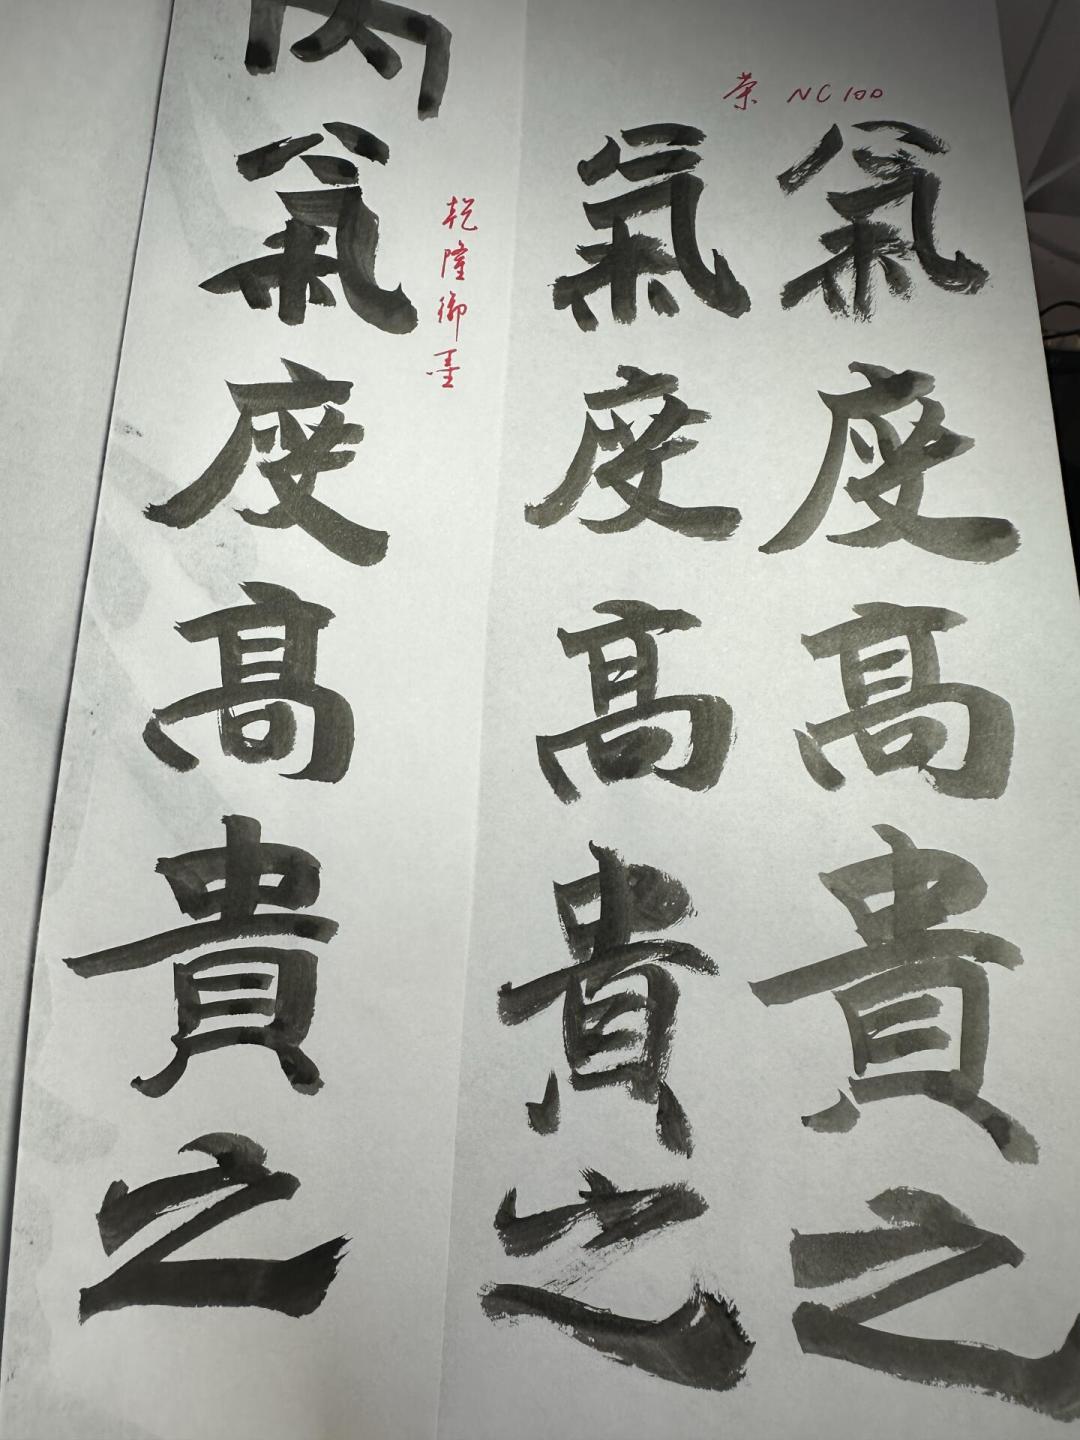 榮 NC100
氣度高貴之
氣度高貴之
乾隆御墨
氣度高貴之